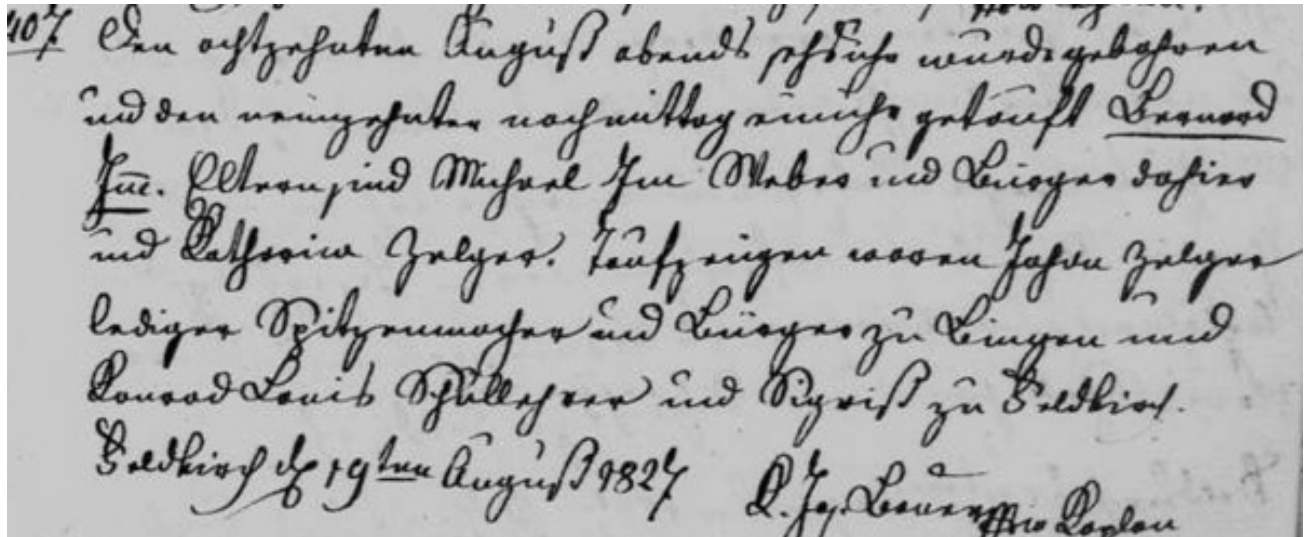 407 Den achtzehnten August abends sechs uhr wurde gebohren
und den neunzehnten nachmittag ein uhr getauft Bernard
Imm. Eltern sind Michael Imm Weber und Bürger dahier
und Katharina Zelger. Taufzeugen waren Johan Zelger
lediger Spitzenmacher und Bürger zu Bingen und
Konrad Louis Schullehrer und Sigrist zu Feldkirch.
Feldkirch d. 19ten August 1827 K. Jos. Bauer Kaplan